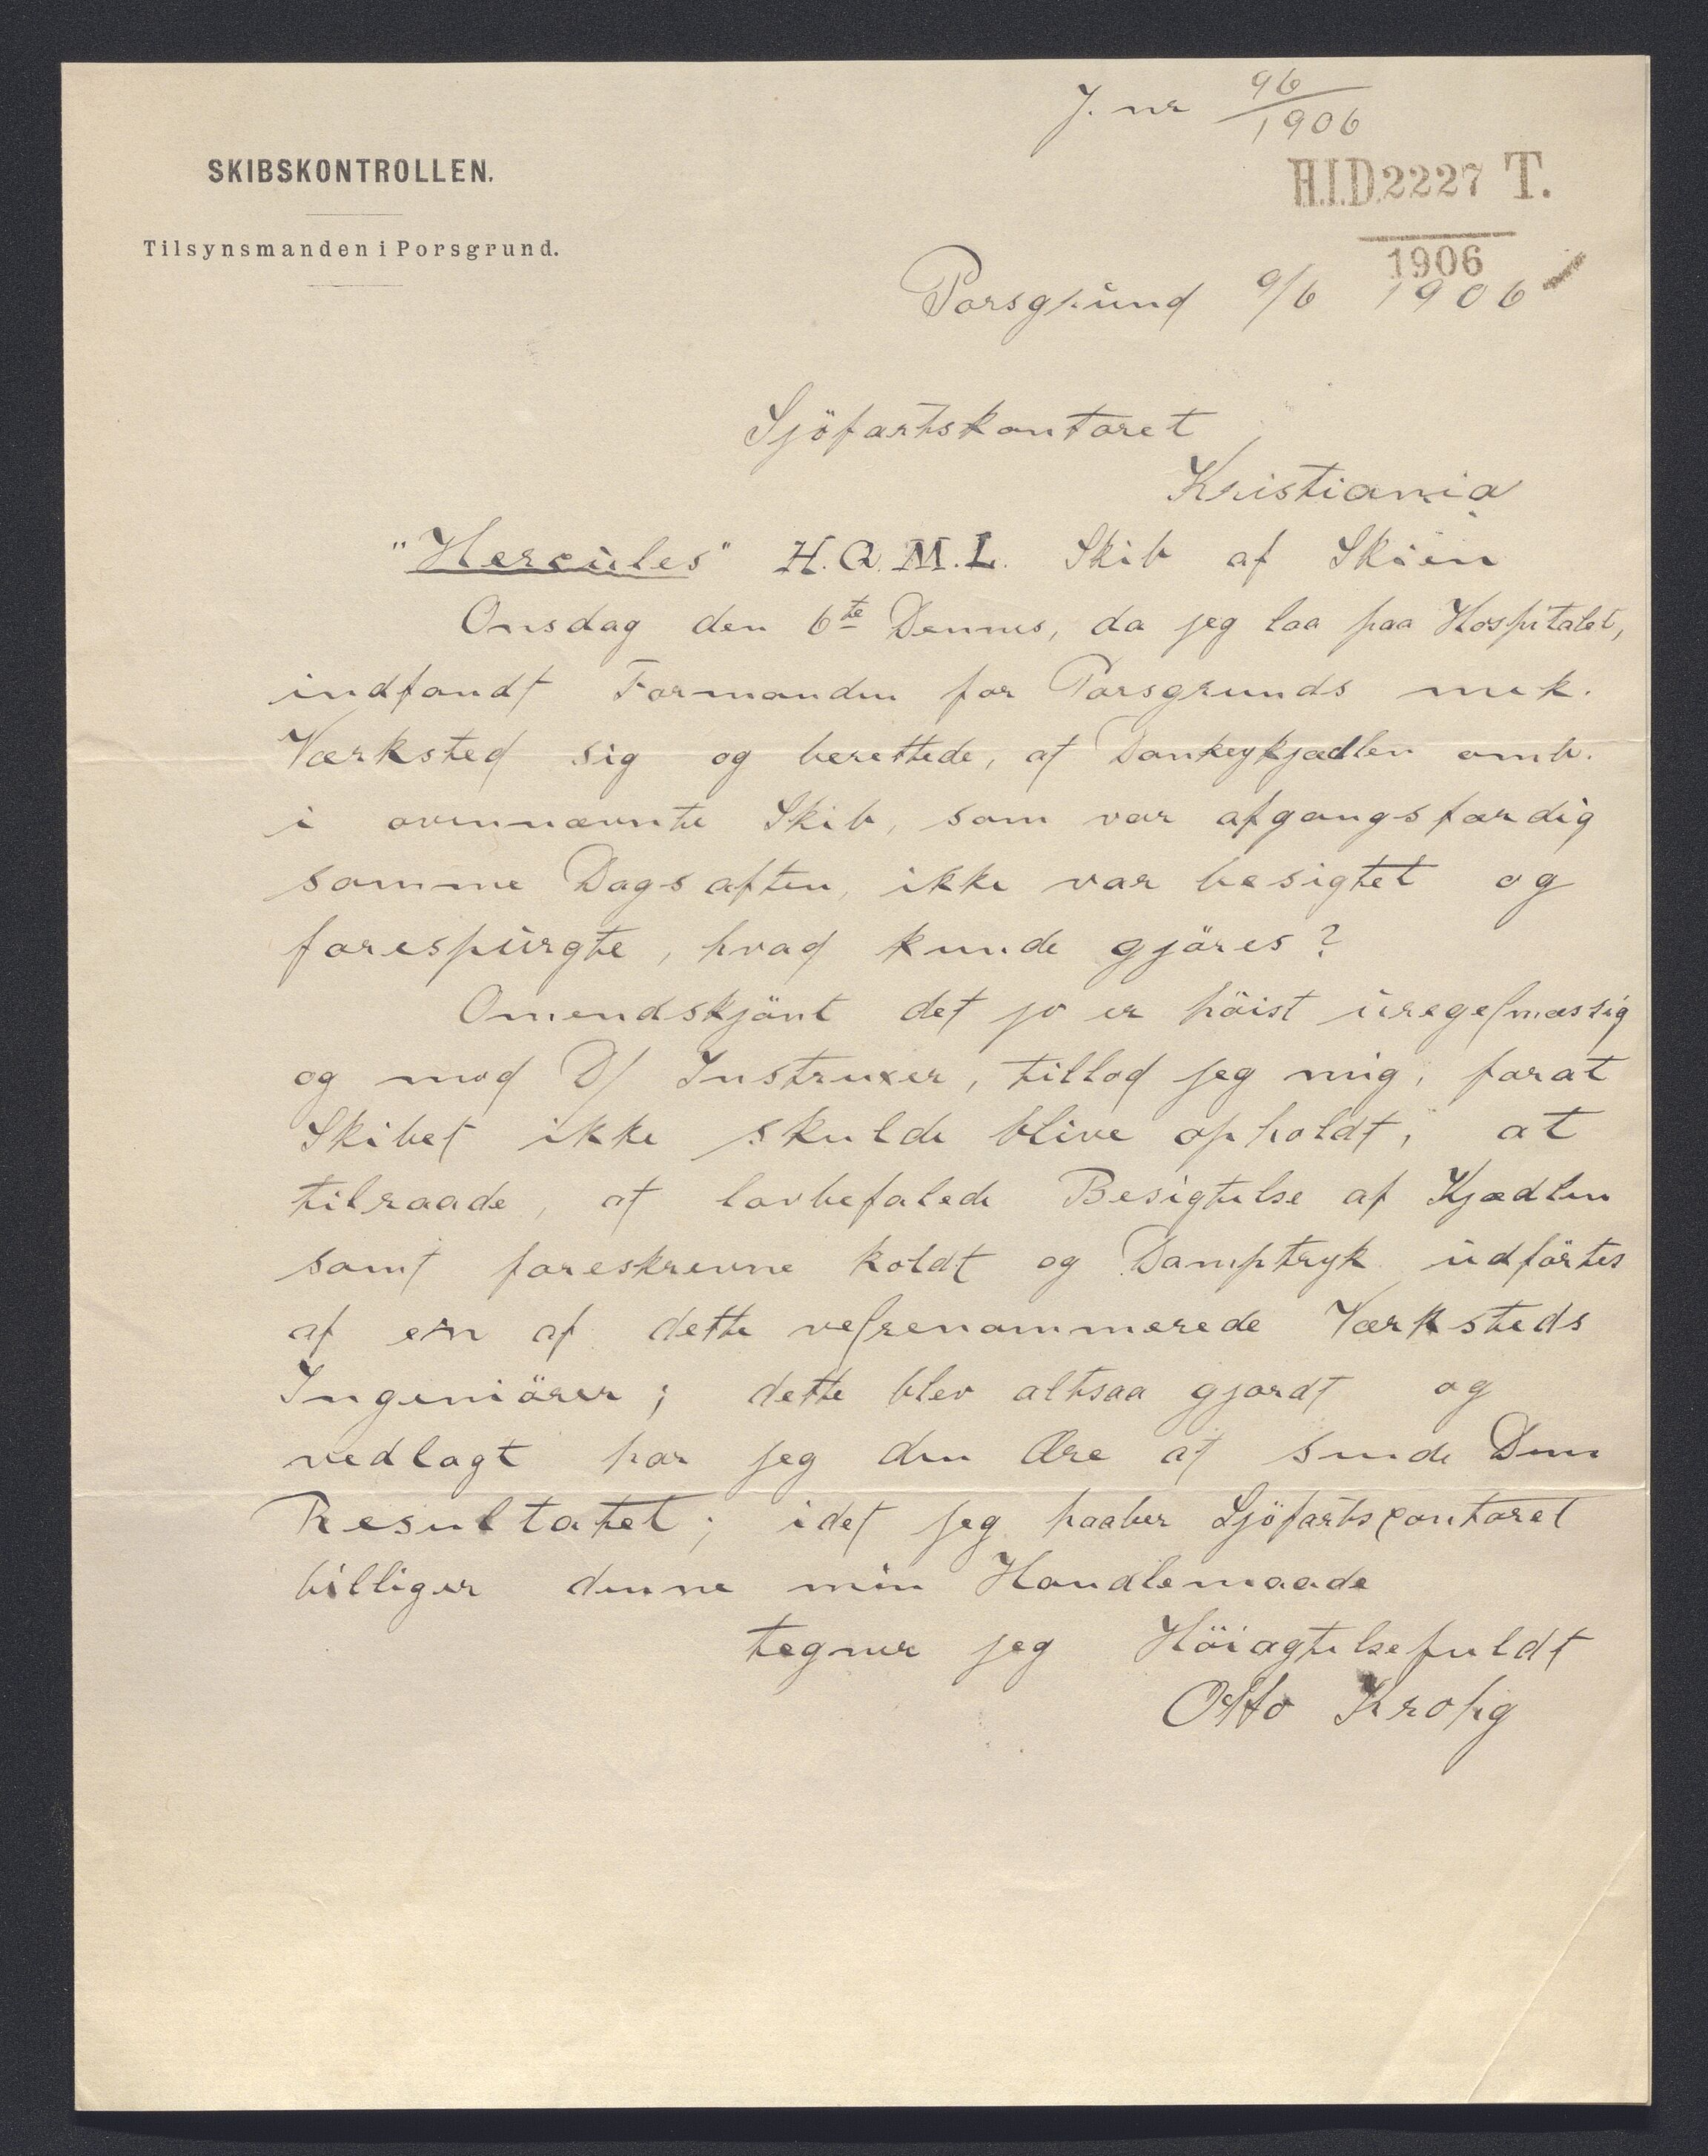 J. nr 96/1906
SKIBSKONTROLLEN.
H.I.D.2227 T.
1906
Tilsynsmanden i Porsgrund.
Porsgrund 9/6 1906
Sjöfartskontoret
Kristiania
"Hercules" H.Q.M.L. Skib af Skien
Onsdag den 6te Dennes, da jeg laa paa Hospitalet,
indfandt Formanden for Porsgrunds mek.
Værksted sig og berettede, at Donkeykjædlen omb.
i ovennævnte Skib, som var afgangsfærdig
samme Dags aften, ikke var besigtet og
forespurgte, hvad kunde gjöres?
Omendskjönt det jo er höist uregelmæssig
og mod D/ Instruxer, tillod jeg mig, forat
Skibet ikke skulde blive opholdt, at
tilraade, at lovbefalede Besigtelse af Kjædlen
samt foreskrevne koldt og Damptryk udförtes
af en af dette velrenommerede Værksteds
Ingeniörer; dette blev altsaa gjordt og
vedlagt har jeg den Ære at sende Dem
Resultatet; idet jeg haaber Sjöfartscontoret
billiger denne min Handlemaade
tegner jeg Höiagtelsefuldt
Otto Krohg